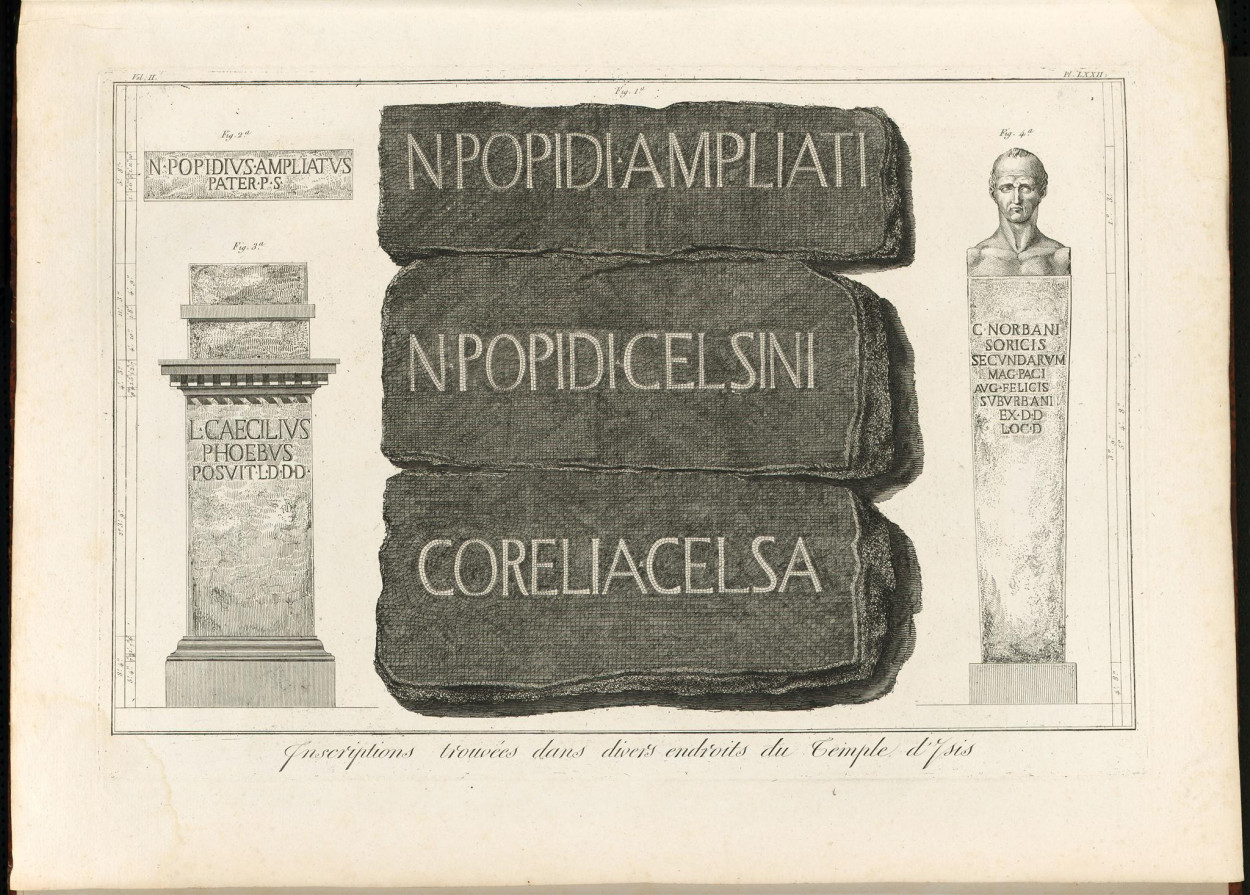 Vol. II.
Pl. LXXII.
Fig. 1.ª
N·POPIDI·AMPLIATI
N·POPIDI·CELSINI
CORELIA·CELSA
Fig. 2.ª
N·POPIDIVS·AMPLIATVS
PATER·P·S·
Fig. 3.ª
L·CAECILIVS
PHOEBVS
POSVIT·L·D·D·D·
Fig. 4.ª
C·NORBANI
SORICIS
SECVNDARVM
MAG·PAGI
AVG·FELICIS
SVBVRBANI
EX·D·D
LOC·D
Inscriptions trouvées dans divers endroits du Temple d'Isis